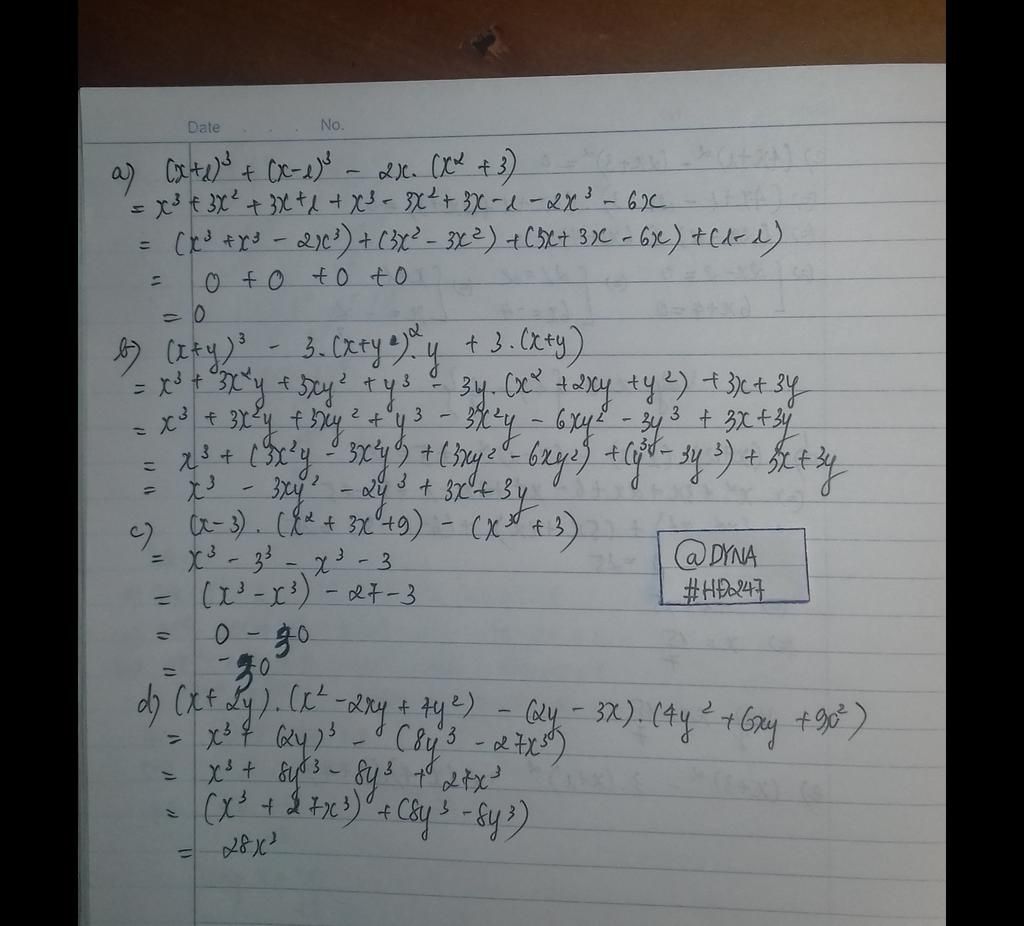 Date . . . No.
a) (x+1)³ + (x-1)³ - 2x. (x² + 3)
= x³ + 3x² + 3x+1 + x³ - 3x² + 3x - 1 - 2x³ - 6x
= (x³ + x³ - 2x³) + (3x² - 3x²) + (3x + 3x - 6x) + (1-1)
= 0 + 0 + 0 + 0
= 0
b) (x+y)³ - 3.(x+y)².y + 3.(x+y)
= x³ + 3x²y + 3xy² + y³ - 3y.(x² + 2xy + y²) + 3x + 3y
= x³ + 3x²y + 3xy² + y³ - 3x²y - 6xy² - 3y³ + 3x + 3y
= x³ + (3x²y - 3x²y) + (3xy² - 6xy²) + (y³ - 3y³) + 3x + 3y
= x³ - 3xy² - 2y³ + 3x + 3y
c) (x-3).(x² + 3x + 9) - (x³ + 3)
= x³ - 3³ - x³ - 3
= (x³ - x³) - 27 - 3
= 0 - 30
= -30
@DYNA
#HĐ247
d) (x + 2y).(x² - 2xy + 4y²) - (2y - 3x).(4y² + 6xy + 9x²)
= x³ + (2y)³ - (8y³ - 27x³)
= x³ + 8y³ - 8y³ + 27x³
= (x³ + 27x³) + (8y³ - 8y³)
= 28x³